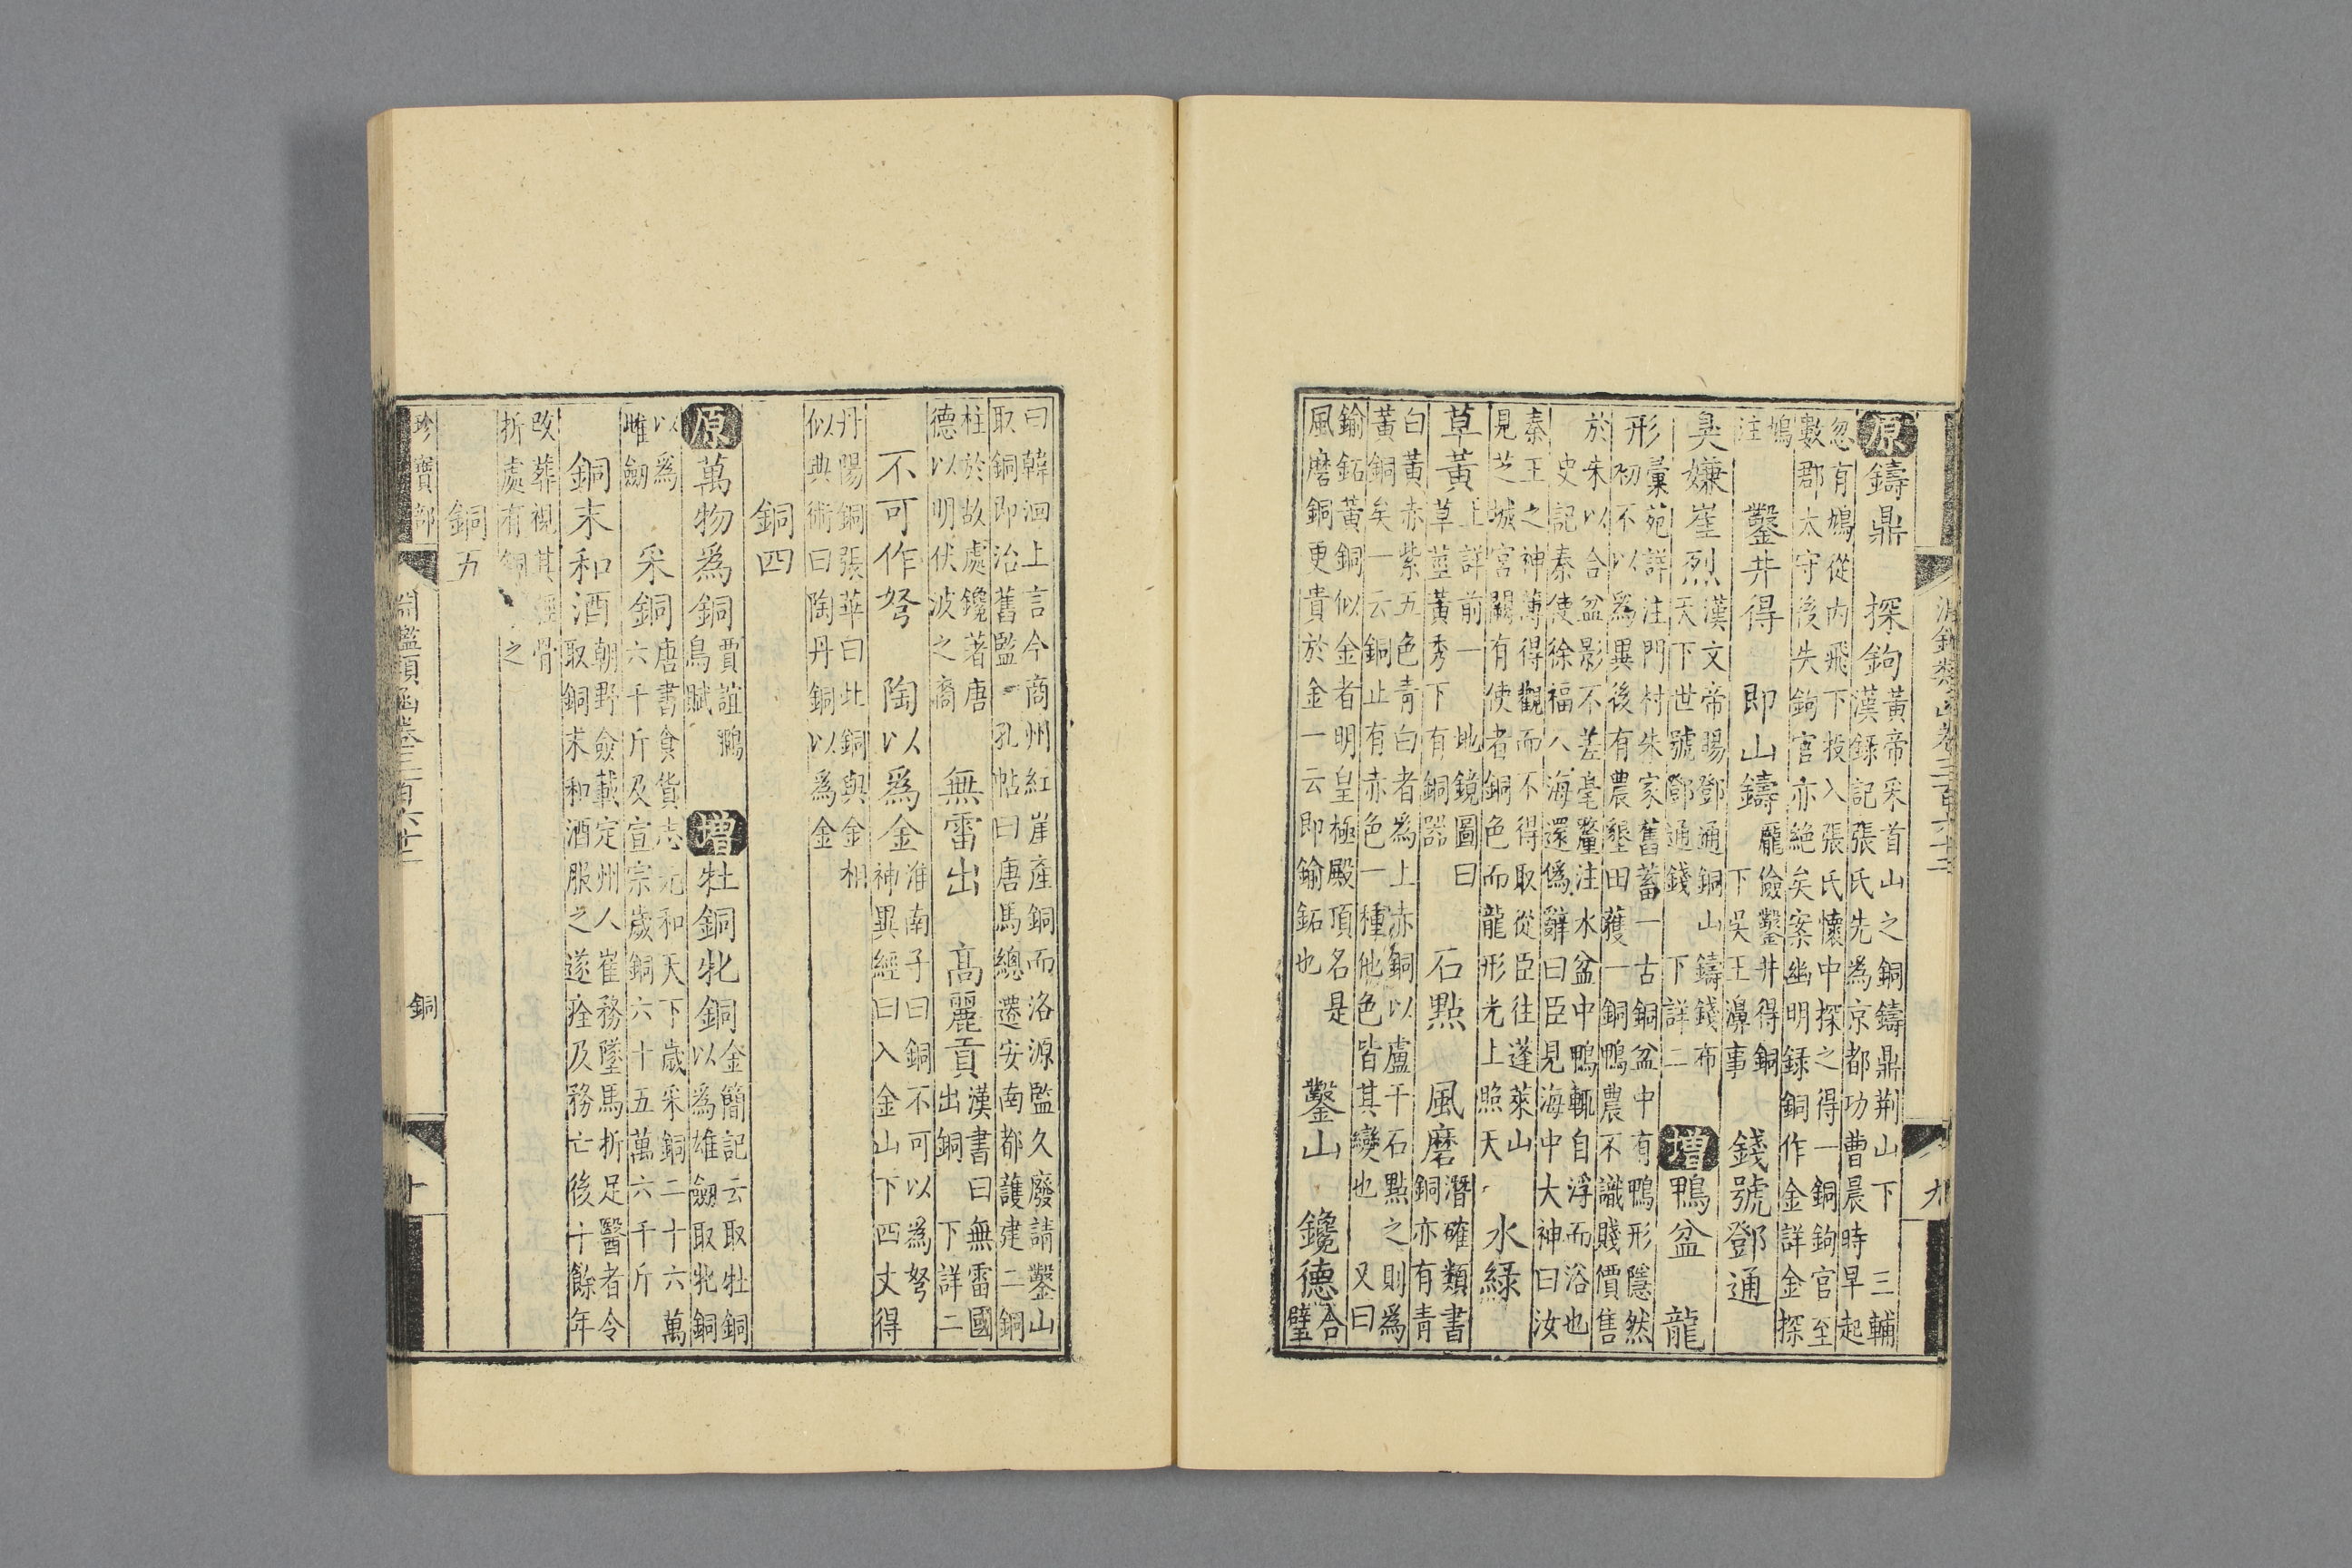 淵鑑類函卷三百六十二 九
原鑄鼎 探鉤
黃帝采首山之銅鑄鼎荆山下 三輔
漢錄記張氏先為京都功曹晨時早起
忽有鳩從内飛下投入張氏懷中探之得一銅鉤官至
數郡太守後失鉤官亦絕矣案幽明錄銅作金詳金探
鳩
注
鑿井得 即山鑄
龎儉鑿井得銅
下吳王濞事
錢號鄧通
臭嫌崔烈
漢文帝賜鄧通銅山鑄錢布
天下世號鄧通錢 下詳二
增鴨盆 龍
形
彙苑詳注門村朱家舊蓄一古銅盆中有鴨形隱然
初不以為異後有農墾田獲一銅鴨農不識賤價售
於朱以合盆影不差毫釐注水盆中鴨輒自浮而浴也
史記秦使徐福入海還偽辭曰臣見海中大神曰汝
秦王之神薄得觀而不得取從臣往蓬萊山
見芝城宮闕有使者銅色而龍形光上照天
水綠
草黃
上詳前一 地鏡圖曰
草莖黃秀下有銅器
石點 風磨
潛確類書
銅亦有青
白黃赤紫五色青白者為上赤銅以盧干石點之則為
黃銅矣一云銅止有赤色一種他色皆其變也 又曰
鍮鉐黃銅似金者明皇極殿頂名是
風磨銅更貴於金一云即鍮鉐也
鑿山 鑱德
合
璧
曰韓洄上言今商州紅崖產銅而洛源監久廢請鑿山
取銅即治舊監 孔帖曰唐馬總遷安南都護建二銅
柱於故處鑱著唐
德以明伏波之裔
無雷出 高麗貢
漢書曰無雷國
出銅 下詳二
不可作弩 陶以為金
淮南子曰銅不可以為弩
神異經曰入金山下四丈得
丹陽銅張華曰此銅與金相
似典術曰陶丹銅以為金
銅四
原萬物為銅
賈誼鵩
鳥賦
增牡銅牝銅
金簡記云取牡銅
以為雄劒取牝銅
以為
雌劒
采銅
唐書食貨志元和天下歲采銅二十六萬
六千斤及宣宗歲銅六十五萬六千斤
銅末和酒
朝野僉載定州人崔務墜馬折足醫者令
取銅末和酒服之遂痊及務亡後十餘年
改葬視其脛骨
折處有銅之
銅五
珍寶部 淵鑑類函卷三百六十二 銅 十